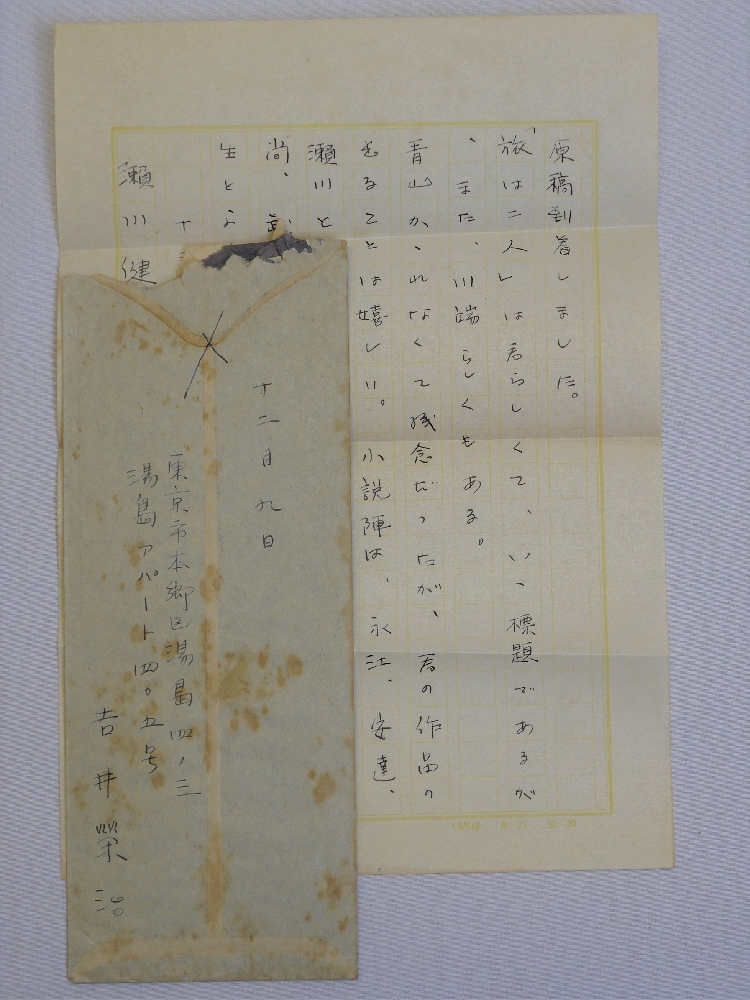 原稿到着しました。
「旅は二人」は君らしくて、いゝ標題であるが
、また、川端らしくもある。
青山が、れなくて残念だったが、君の作品の
をることは嬉しい。小説陣は、永江、安達、
瀬川と
尚、
生とよ
十
瀬川健
十二月九日
東京市本郷区湯島四ノ三
湯島アパート四〇五号
吉井栄治